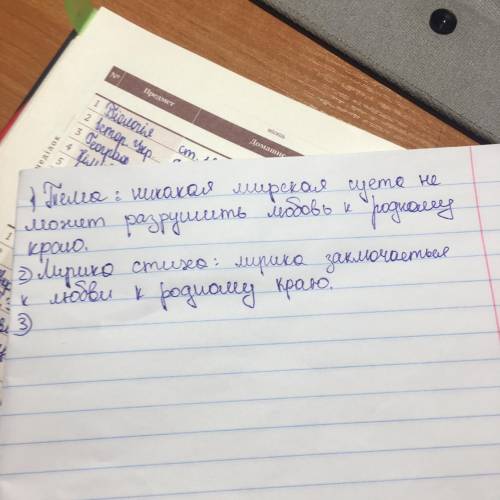 №
Предмет
Домашнє
1 Біологія
2 Істор. Укр
3 Географ
4
5
1) Тема: никакая мирская суета не
может разрушить любовь к родному
краю.
2) Лирика стиха: лирика заключаеться
к любви к родному краю.
3)